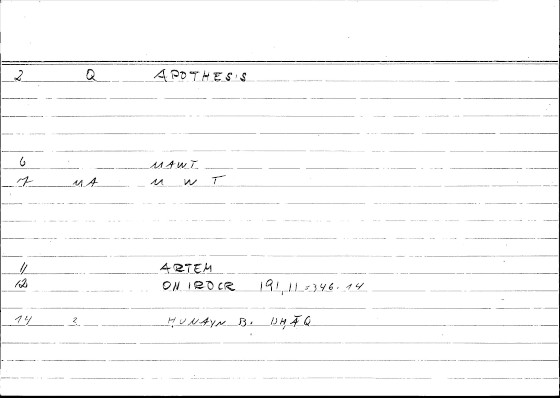 2 Q APOTHESIS
6 MAWT
7 MA M W T
11 ARTEM
12 ONIROCR 191,11=346.14
14 2 HUNAYN B. ISḤĀQ